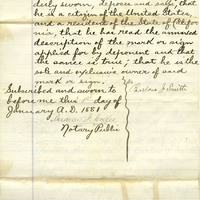 duly sworn, deposes and says, that
he is a citizen of the United States,
and a resident of the State of Califor
nia, that he has read the annexed
description of the mark or sign
applied for by deponent and that
the same is true; that he is the
sole and exclusive owner of said
mark or sign.
Subscribed and sworn to
before me this day of
January A.D. 1881
Notary Public